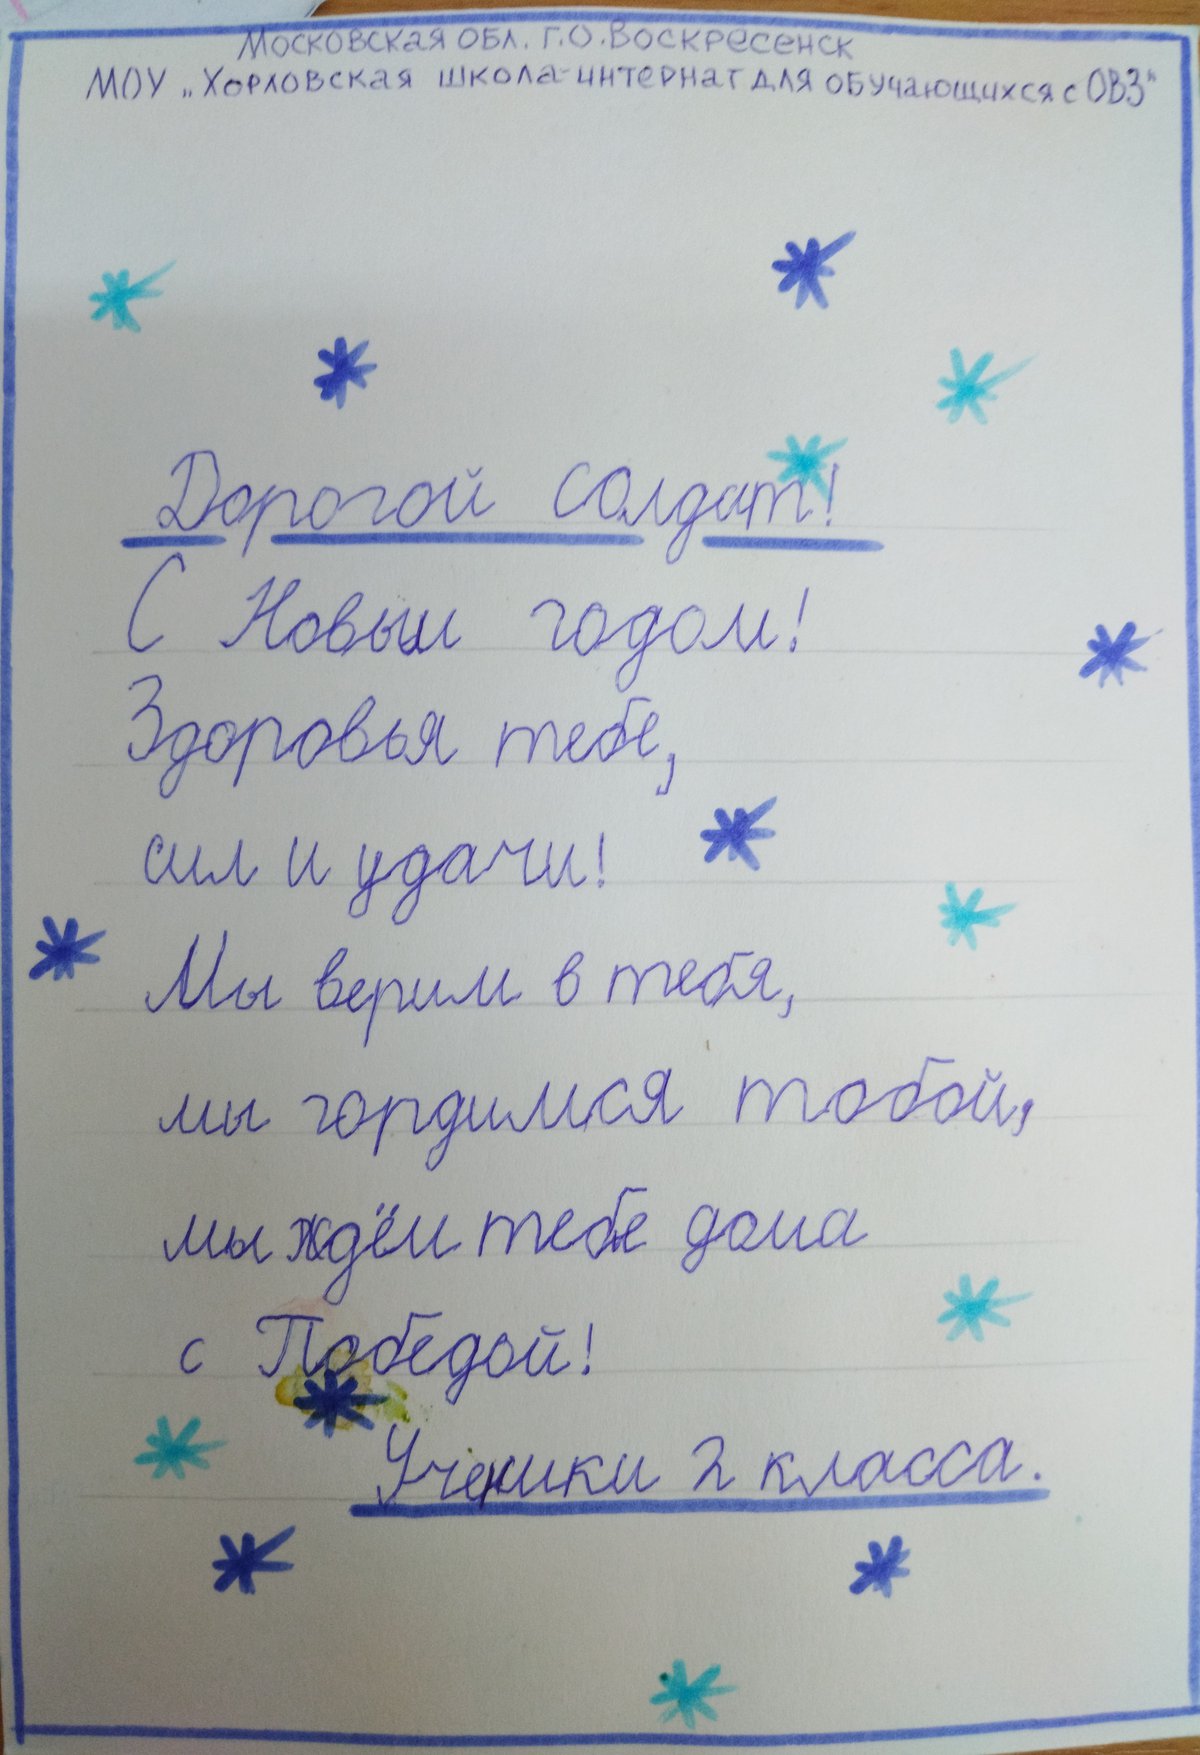 Московская обл. г.о. Воскресенск
МОУ „Хорловская школа-интернат для обучающихся с ОВЗ"
Дорогой солдат!
С Новым годом!
Здоровья тебе,
сил и удачи!
Мы верим в тебя,
мы гордимся тобой,
мы ждём тебе дома
с Победой!
Ученики 2 класса.